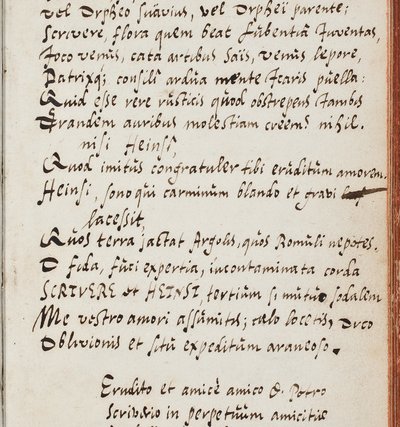 vel Orpheo suavius, vel Orphei parente;
Scrivere, flora quem beat Lubentia Iuventas,
Ioco venus, cata artibus Sais, venus lepore,
Patrixq; consili ardua mente Icaris puella:
Quid esse rere rusticis quod obstrepens Iambus
Grandem auribus molestiam creem? nihil.
nisi Heinsi,
Quod imitus congratuler tibi eruditum amorem.
Heinsi, sono qui carminum blando et gravi
lacessit,
Quos terra jactat Argolis, quos Romuli nepotes.
O fida, fuci expertia, incontaminata corda
SCRIVERI et HEINSI, tertium si mutuo sodalem
Me vestro amori assumitis; calo locetis, duco
Oblivionis et situ expeditum araneoso.
Erudito et amice amico D. Petro
Scriverio in perpetuum amicitiae